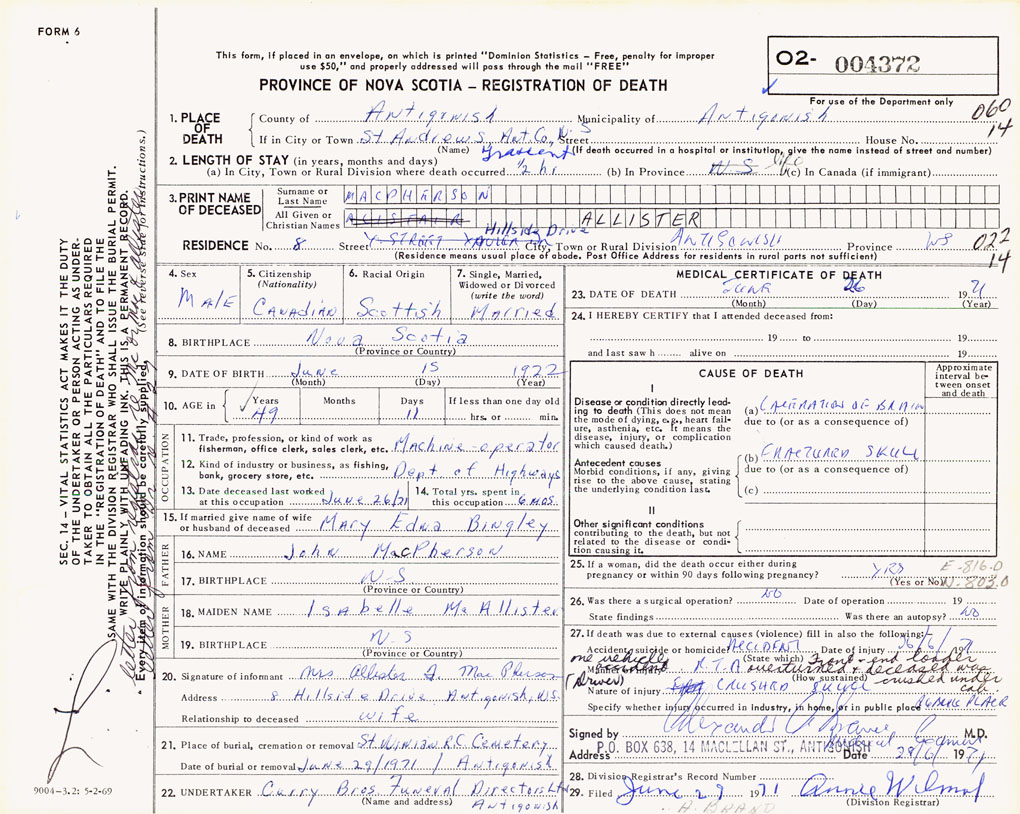 FORM 6
This form, if placed in an envelope, on which is printed "Dominion Statistics – Free, penalty for improper
use $50," and properly addressed will pass through the mail "FREE"
PROVINCE OF NOVA SCOTIA – REGISTRATION OF DEATH
O2- 004372
For use of the Department only
060
14
1. PLACE OF DEATH
County of Antigonish Municipality of Antigonish
If in City or Town St Andrews, Ant. Co. N.S Street House No.
(Name) (If death occurred in a hospital or institution, give the name instead of street and number)
2. LENGTH OF STAY (in years, months and days)
(a) In City, Town or Rural Division where death occurred ½ hr (b) In Province N-S life (c) In Canada (if immigrant)
3. PRINT NAME OF DECEASED
Surname or Last Name MACPHERSON
All Given or Christian Names ALISTAIR ALLISTER
Hillside Drive
RESIDENCE No. 8 Street City, Town or Rural Division ANTIGONISH Province NS
022
14
(Residence means usual place of abode. Post Office Address for residents in rural parts not sufficient)
4. Sex
MALE
5. Citizenship (Nationality)
CANADIAN
6. Racial Origin
Scottish
7. Single, Married, Widowed or Divorced (write the word)
Married
8. BIRTHPLACE Nova Scotia
(Province or Country)
9. DATE OF BIRTH June 15 1922
(Month) (Day) (Year)
10. AGE in Years Months Days If less than one day old
49 11 hrs. or min.
OCCUPATION
11. Trade, profession, or kind of work as fisherman, office clerk, sales clerk, etc. Machine-operator
12. Kind of industry or business, as fishing, bank, grocery store, etc. Dept of Highways
13. Date deceased last worked at this occupation June 26/71
14. Total yrs. spent in this occupation 6 mos.
15. If married give name of wife or husband of deceased Mary Edna Bingley
FATHER
16. NAME John MacPherson
17. BIRTHPLACE N-S
(Province or Country)
MOTHER
18. MAIDEN NAME Isabelle McAllister
19. BIRTHPLACE N.S
(Province or Country)
20. Signature of informant Mrs Allister J. MacPherson
Address 8 Hillside Drive Antigonish, N.S.
Relationship to deceased wife
21. Place of burial, cremation or removal St Ninian R.C. Cemetery
Date of burial or removal June 29/1971 / Antigonish
22. UNDERTAKER Curry Bros. Funeral Directors Ltd
(Name and address) Antigonish
MEDICAL CERTIFICATE OF DEATH
23. DATE OF DEATH June 26 1971
(Month) (Day) (Year)
24. I HEREBY CERTIFY that I attended deceased from:
19 to 19
and last saw h alive on 19
CAUSE OF DEATH
Approximate interval between onset and death
I
Disease or condition directly leading to death (This does not mean the mode of dying, e.g., heart failure, asthenia, etc. It means the disease, injury, or complication which caused death.)
(a) LACERATION OF BRAIN
due to (or as a consequence of)
Antecedent causes
Morbid conditions, if any, giving rise to the above cause, stating the underlying condition last.
(b) FRACTURED SKULL
due to (or as a consequence of)
(c)
II
Other significant conditions contributing to the death, but not related to the disease or condition causing it.
25. If a woman, did the death occur either during pregnancy or within 90 days following pregnancy?
(Yes or No)
E-816.0
N-803.0
26. Was there a surgical operation? NO Date of operation 19
State findings Was there an autopsy? NO
27. If death was due to external causes (violence) fill in also the following:
Accident, suicide or homicide? ACCIDENT Date of injury 26/6/1971
(State which)
one vehicle accident R.T.A Front-end loader overturned & deceased was crushed under cab.
(driver)
(How sustained)
Nature of injury CRUSHED SKULL
Specify whether injury occurred in industry, in home, or in public place PUBLIC PLACE
Signed by M.D.
P.O. BOX 638, 14 MACLELLAN ST., ANTIGONISH
Address Date 28/6/1971
28. Division Registrar's Record Number
29. Filed June 29 1971 Annie Wilmot
(Division Registrar)
SEC. 14 – VITAL STATISTICS ACT MAKES IT THE DUTY
OF THE UNDERTAKER OR PERSON ACTING AS UNDER-
TAKER TO OBTAIN ALL THE PARTICULARS REQUIRED
IN THE "REGISTRATION OF DEATH" AND TO FILE THE
SAME WITH THE DIVISION REGISTRAR WHO SHALL ISSUE THE BURIAL PERMIT.
WRITE PLAINLY WITH UNFADING INK. THIS IS A PERMANENT RECORD.
Every item of information should be carefully supplied. (See reverse side for instructions.)
9004-3.2: 5-2-69